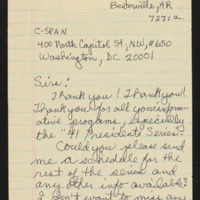 Bentonville, AR
72712
C-SPAN
400 North Capitol St., NW, #650
Washington, DC 20001
Sirs:
Thank you! Thank you!
Thank you for all your infor-
mative programs, especially
the "41 Presidents" Series.
Could you please send
me a schedule for the
rest of the series and
any other info available?
I don't want to miss any